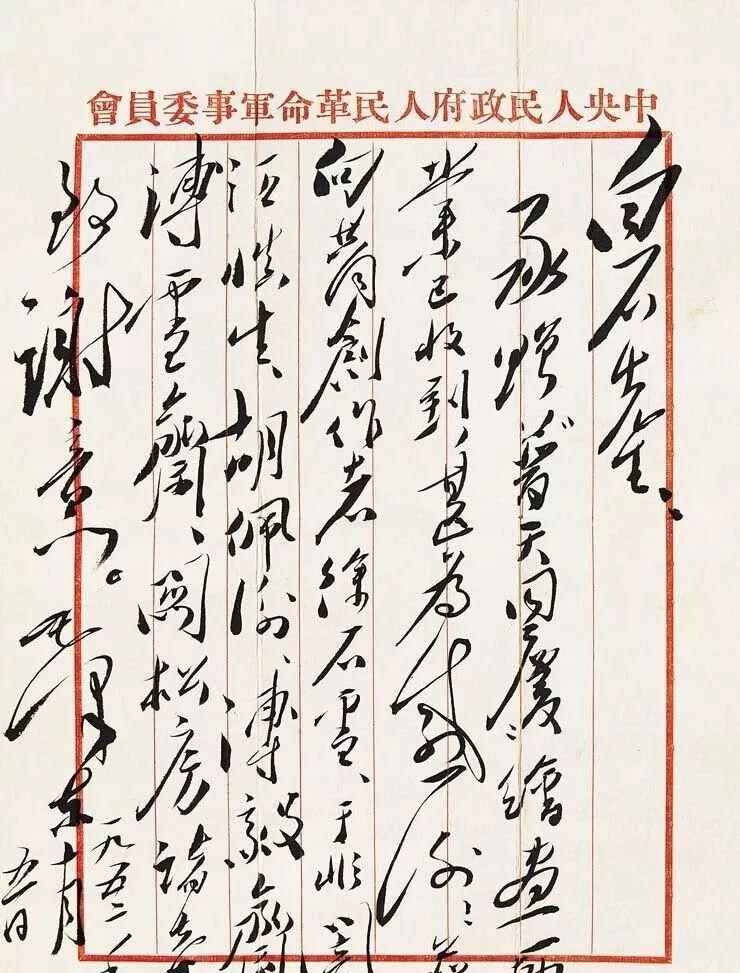 中央人民政府人民革命軍事委員會
白石先生：
承贈普天同慶繪畫一
業已收到，甚為感謝；
向共同創作者徐石雪、于非闇
汪慎生、胡佩衡、溥毅齋
溥雪齋、關松房諸先
致謝意。毛澤東
一九五二年
十月
五日